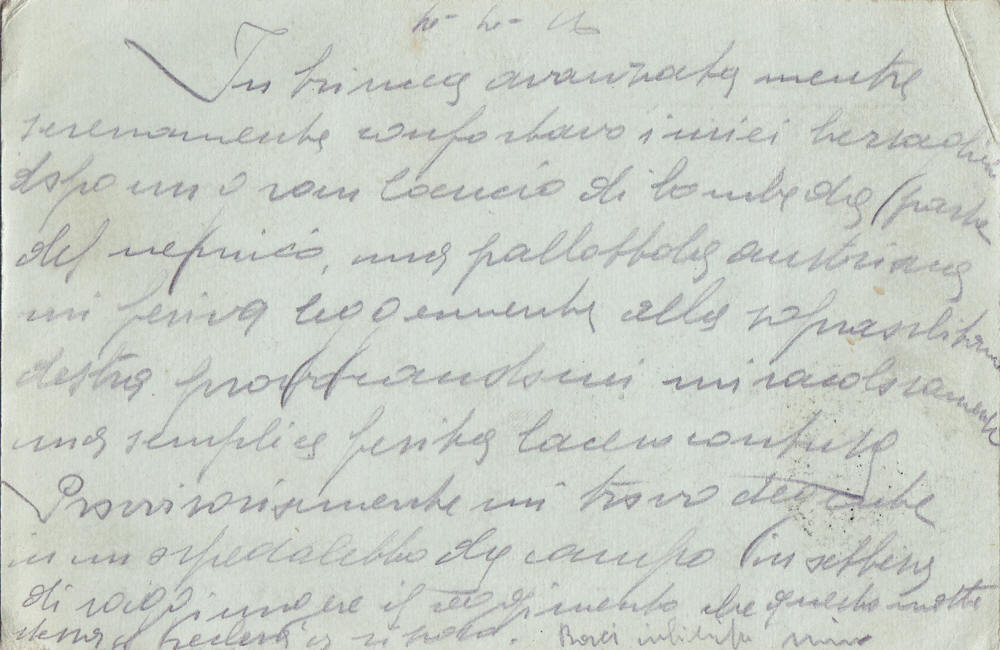 In trincea avanzata mentre
serenamente confortavo i miei bersaglieri
dopo un gran lancio di bombe da parte
del nemico, una pallottola austriana
mi feriva leggermente alla
destra procurandomi miracolosamente
una semplice ferita lacero contusa
Provvisoriamente mi trovo degente
in un ospedaletto da campo in attesa
di raggiungere il reggimento che questa notte
stessa a riposo. Baci